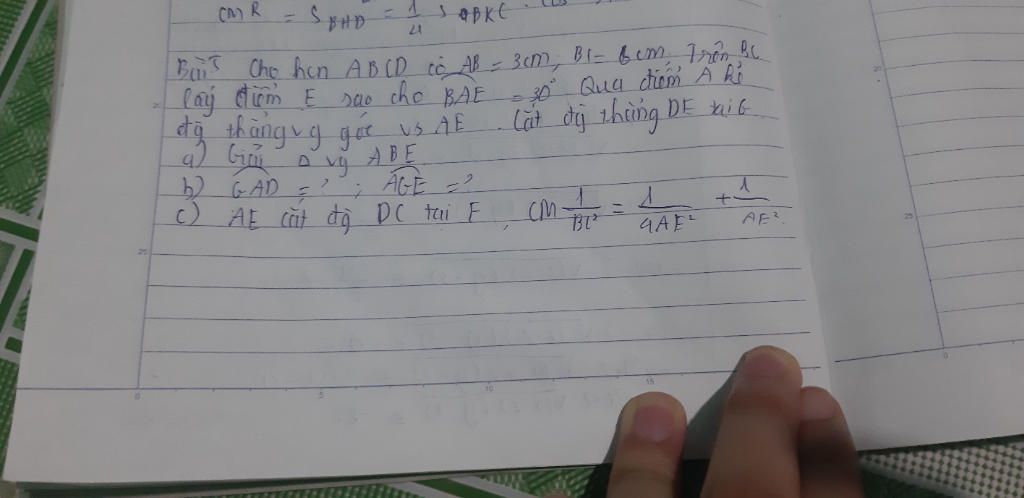 CMR = S BHD = 1/4 S BKC .
Bài 5 Cho hcn ABCD có AB = 3cm, BC = 6cm. Trên BC
lấy điểm E sao cho BAE = 30° Qua điểm A kẻ
đg thẳng vg góc vs AE. Cắt đg thẳng DE tại G
a) Giải Δ vg ABE
b) GAD = ? ; AGE = ?
c) AE cắt đg DC tại F. CM 1/BC² = 1/4AE² + 1/AF².